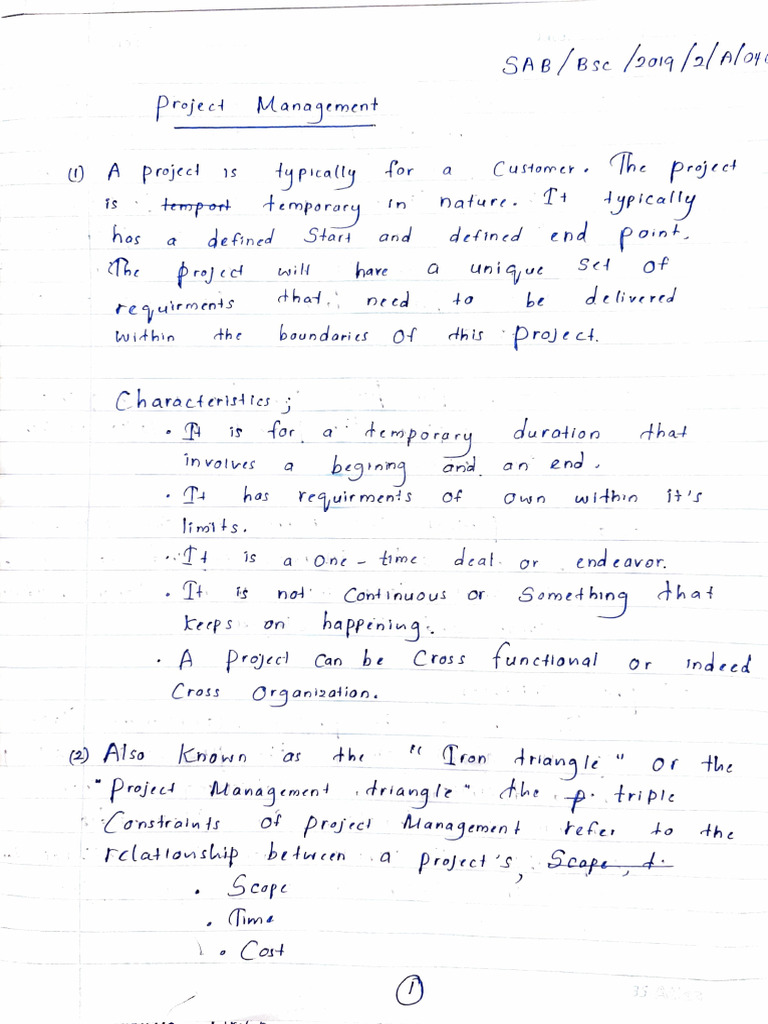 SAB/Bsc/2019/2/A/04
Project Management
(1) A project is typically for a Customer. The project
is temport temporary in nature. It typically
has a defined Start and defined end point.
The project will have a unique set of
requirments that need to be delivered
within the boundaries of this project.
Characteristics ;
• It is for a temporary duration that
involves a begining and an end.
• It has requirments of own within it's
limits.
• It is a one-time deal or endeavor.
• It is not continuous or Something that
keeps on happening.
• A project can be Cross functional or indeed
Cross Organization.
(2) Also Known as the "Iron triangle" or the
"Project Management triangle" the p. triple
Constraints of project Management refer to the
relationship between a project's, Scope, t.
• Scope
• Time
• Cost
1